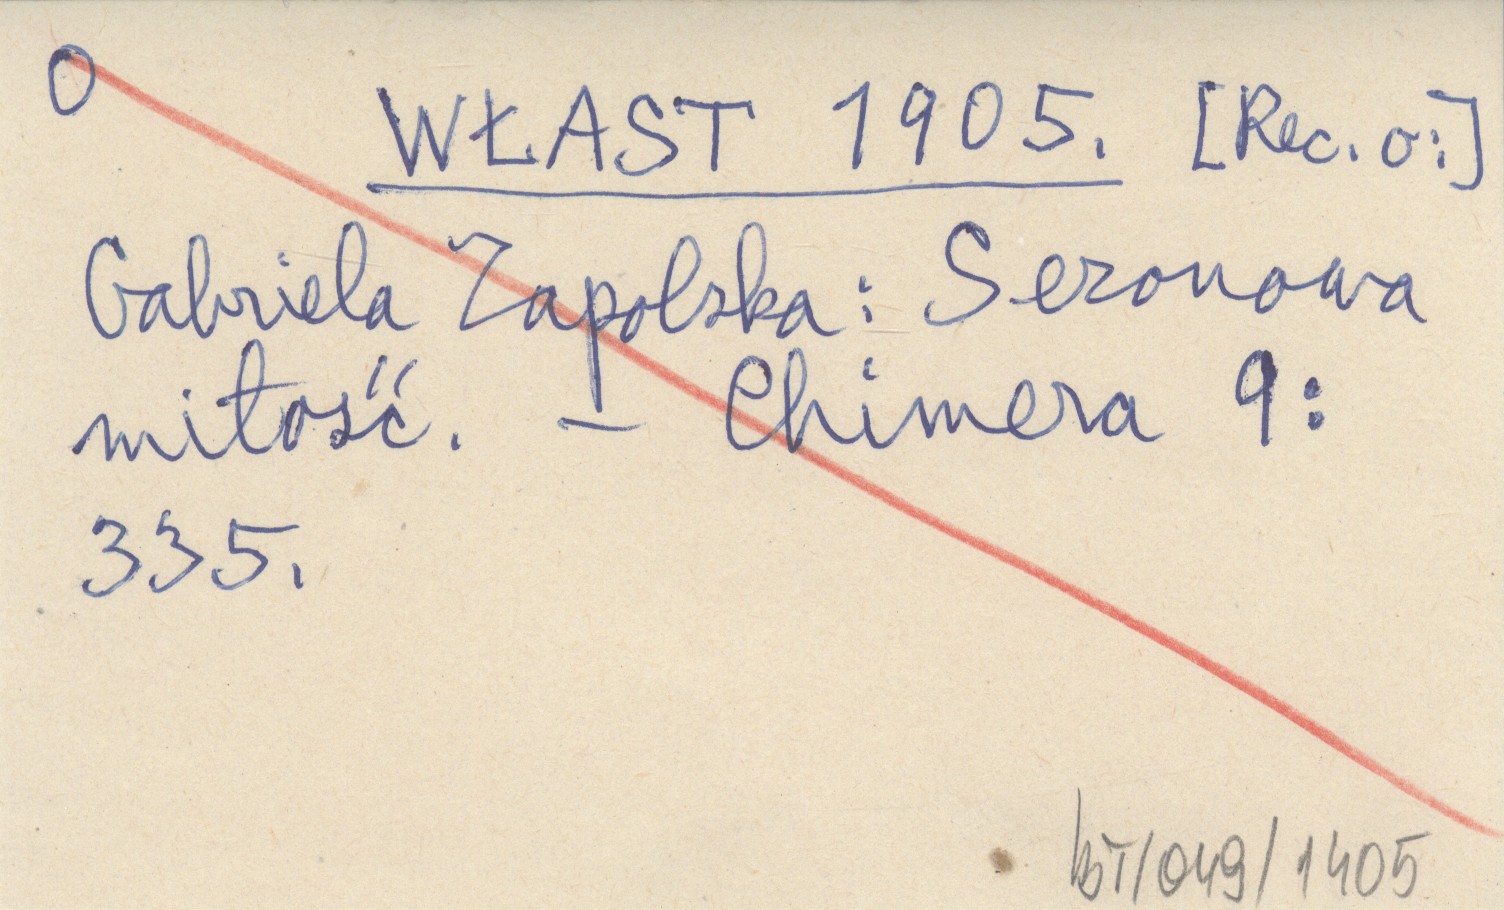 O
WŁAST 1905. [Rec. o:]
Gabriela Zapolska: Sezonowa
miłość. – Chimera 9:
335.
/049/1405